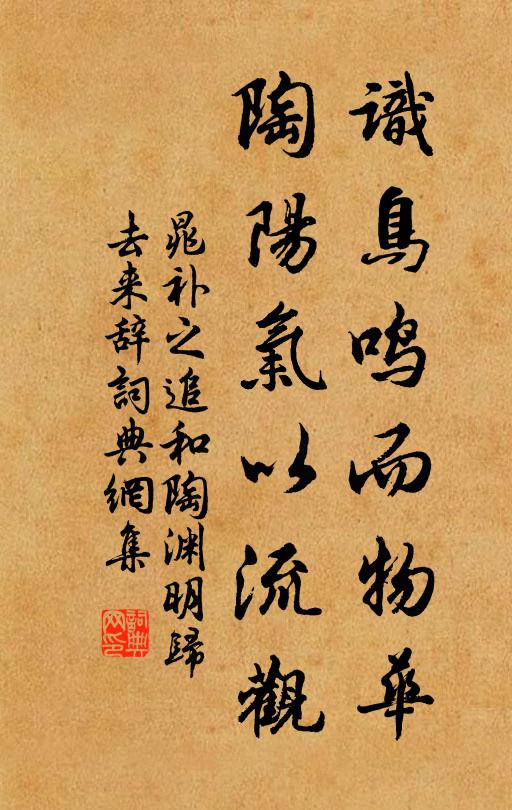 識鳥鳴而物華
陶陽氣以流觀
晁补之追和陶渊明歸
去来辞詞典網集
詞典
网印